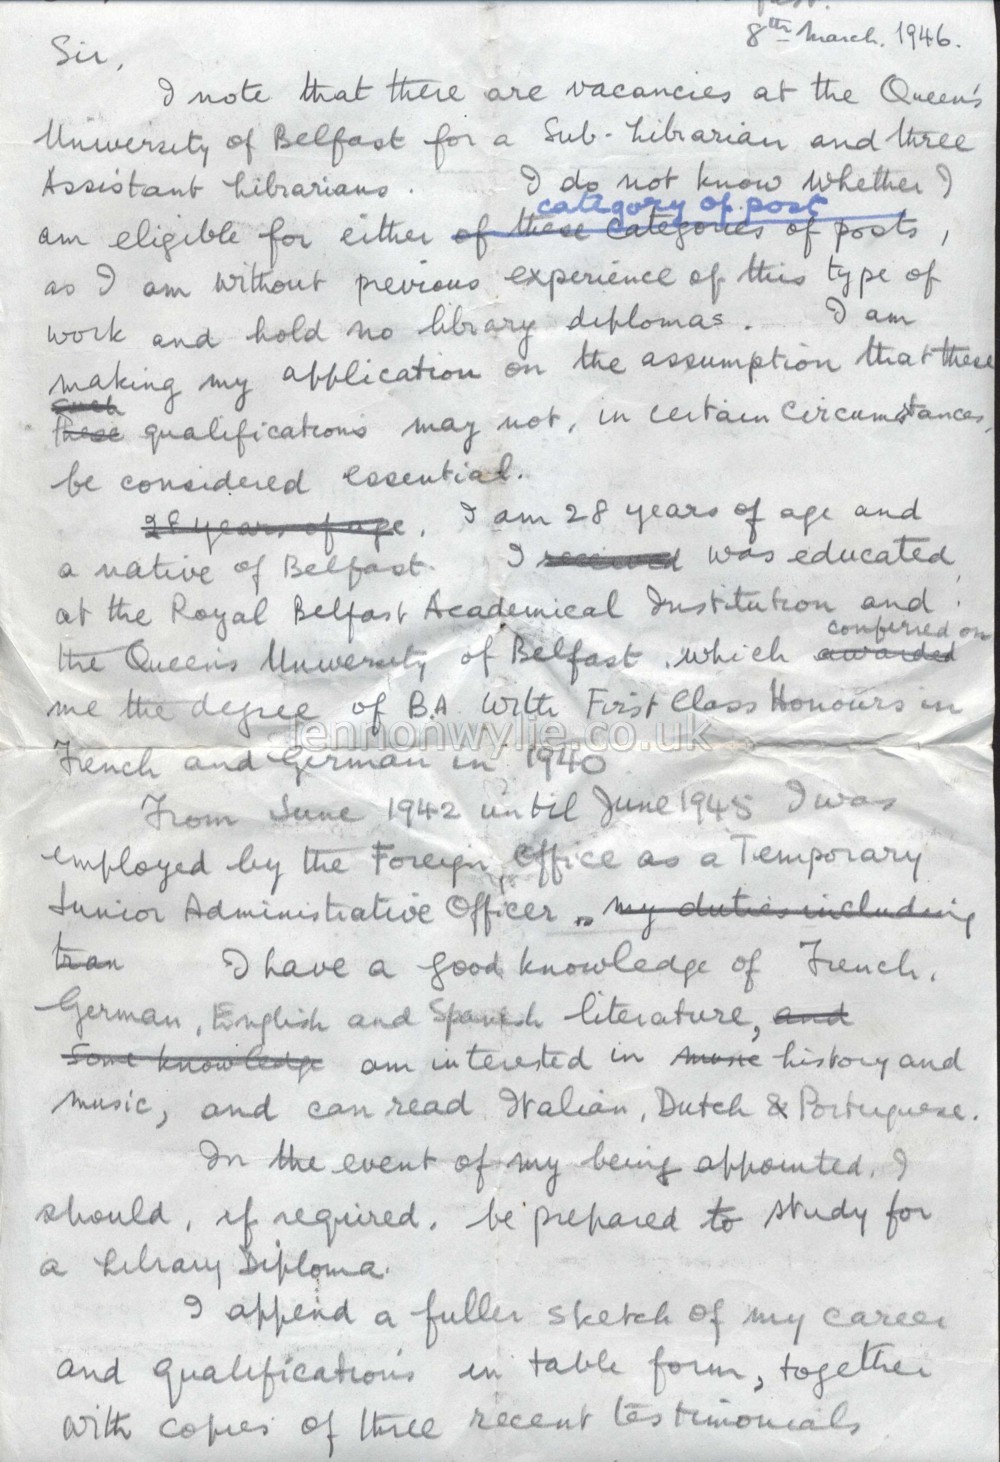 8th March, 1946.
Sir,
I note that there are vacancies at the Queen's
University of Belfast for a Sub-Librarian and three
Assistant Librarians. I do not know whether I
category of post
am eligible for either of these categories of posts,
as I am without previous experience of this type of
work and hold no library diplomas. I am
making my application on the assumption that these
such
these qualifications may not, in certain circumstances,
be considered essential.
28 years of age. I am 28 years of age and
a native of Belfast. I received was educated
at the Royal Belfast Academical Institution and
conferred on
the Queen's University of Belfast, which awarded
me the degree of B.A. with First Class Honours in
jennonwylie.co.uk
French and German in 1940
From June 1942 until June 1945 I was
employed by the Foreign Office as a Temporary
Junior Administrative Officer my duties including
tran I have a good knowledge of French,
German, English and Spanish literature, and
some knowledge am interested in music history and
music, and can read Italian, Dutch & Portuguese.
In the event of my being appointed, I
should, if required, be prepared to study for
a Library Diploma.
I append a fuller sketch of my career
and qualifications in table form, together
with copies of three recent testimonials